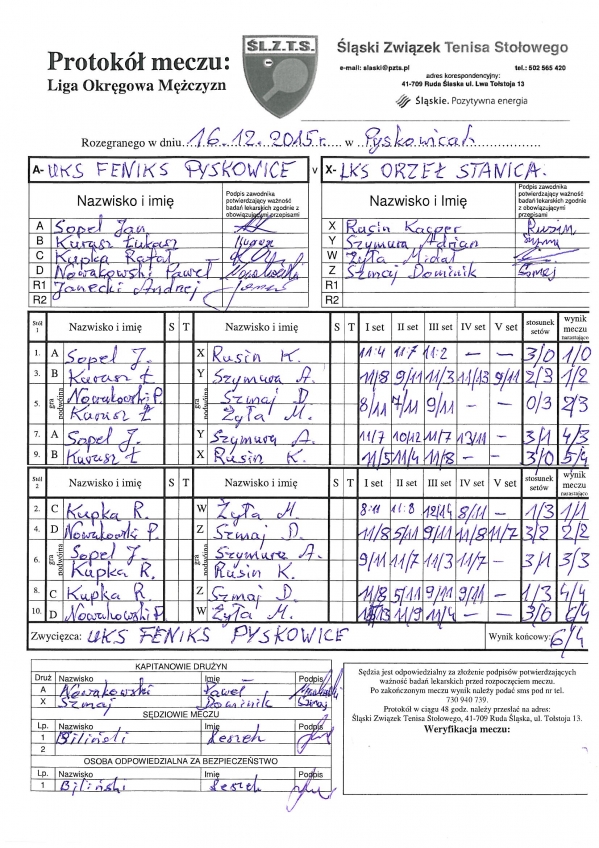 Protokół meczu:
Liga Okręgowa Mężczyzn
ŚL.Z.T.S.
Śląski Związek Tenisa Stołowego
e-mail: slaski@pzts.pl tel.: 502 565 420
adres korespondencyjny:
41-709 Ruda Śląska ul. Lwa Tołstoja 13
Śląskie. Pozytywna energia
Rozegranego w dniu 16.12.2015r. w Pyskowicach
A- UKS FENIKS PYSKOWICE v X- LKS ORZEŁ STANICA.
Nazwisko i imię Podpis zawodnika potwierdzający ważność badań lekarskich zgodnie z obowiązującymi przepisami Nazwisko i imię Podpis zawodnika potwierdzający ważność badań lekarskich zgodnie z obowiązującymi przepisami
A Sopel Jan X Rusin Kacper Rusin
B Kurasz Łukasz Kurasz Y Szymura Adrian
C Kupka Rafał W Żyła Michał
D Nowakowski Paweł Nowakowski Z Szmaj Dominik Szmaj
R1 Janecki Andrej R1
R2 R2
Stół 1 Nazwisko i imię S T Nazwisko i imię S T I set II set III set IV set V set stosunek setów wynik meczu narastająco
1. A Sopel J. X Rusin K. 11:4 11:7 11:2 — — 3/0 1/0
3. B Kurasz Ł Y Szymura A. 11/8 9/11 11/3 11/13 9/11 2/3 1/2
5. gra podwójna Nowakowski P. gra podwójna Szmaj D. 8/11 7/11 9/11 — — 0/3 2/3
Kurasz Ł Żyła M.
7. A Sopel J. Y Szymura A. 11/7 10/12 11/7 13/11 — 3/1 4/3
9. B Kurasz Ł X Rusin K. 11/5 11/4 11/8 — — 3/0 5/4
Stół 2 Nazwisko i imię S T Nazwisko i imię S T I set II set III set IV set V set stosunek setów wynik meczu narastająco
2. C Kupka R. W Żyła M. 8:11 11:8 12/14 8/11 — 1/3 1/1
4. D Nowakowski P. Z Szmaj D. 11/8 5/11 9/11 11/8 11/7 3/2 2/2
6. gra podwójna Sopel J. gra podwójna Szymura A. 9/11 11/7 11/3 11/7 — 3/1 3/3
Kupka R. Rusin K.
8. C Kupka R. Z Szmaj D. 11/8 5/11 9/11 9/11 — 1/3 4/4
10. D Nowakowski P. W Żyła M. 11/9 11/4 — — 3/0 6/4
Zwycięzca: UKS FENIKS PYSKOWICE Wynik końcowy: 6/4
KAPITANOWIE DRUŻYN
Druż Nazwisko Imię Podpis
A Nowakowski Paweł Nowakowski
X Szmaj Dominik Szmaj
SĘDZIOWIE MECZU
Lp. Nazwisko Imię Podpis
1 Biliński Leszek
2
OSOBA ODPOWIEDZIALNA ZA BEZPIECZEŃSTWO
Lp. Nazwisko Imię Podpis
1 Biliński Leszek
Sędzia jest odpowiedzialny za złożenie podpisów potwierdzających
ważność badań lekarskich przed rozpoczęciem meczu.
Po zakończonym meczu wynik należy podać sms pod nr tel.
730 940 739.
Protokół w ciągu 48 godz. należy przesłać na adres:
Śląski Związek Tenisa Stołowego, 41-709 Ruda Śląska, ul. Tołstoja 13.
Weryfikacja meczu: